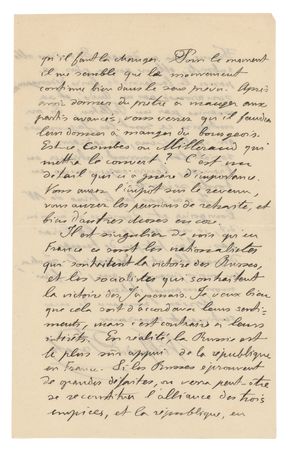 qu'il faut la changer. Pour le moment
il me semble que le mouvement
continue bien dans le sens prévu. Après
avoir donner du prêtre à manger aux
partis avancés, vous verrez qu'il faudra
leur donner à manger du bourgeois.
Est-ce Combes ou Millerand qui
mettra le couvert ? C'est un
détail qui a guère d'importance.
Vous aurez l'impôt sur le revenu,
vous aurez les pensions de retraite, et
bien d'autres choses encore.
Il est singulier de voir qu'en
France ce sont les nationalistes
qui souhaitent la victoire des Russes,
et les socialistes qui souhaitent
la victoire des Japonais. Je veux bien
que cela soit d'accord avec leurs senti-
ments, mais c'est contraire à leurs
intérêts. En réalité, la Russie est
le plus sûr appui de la république
en France. Si les Russes éprouvent
de grandes défaites, on verra peut-être
se reconstituer l'alliance des trois
empires, et la république, en